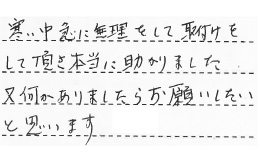 寒い中急に無理をして取付けを
して頂き本当に助かりました
又何かありましたらお願いしたい
と思います